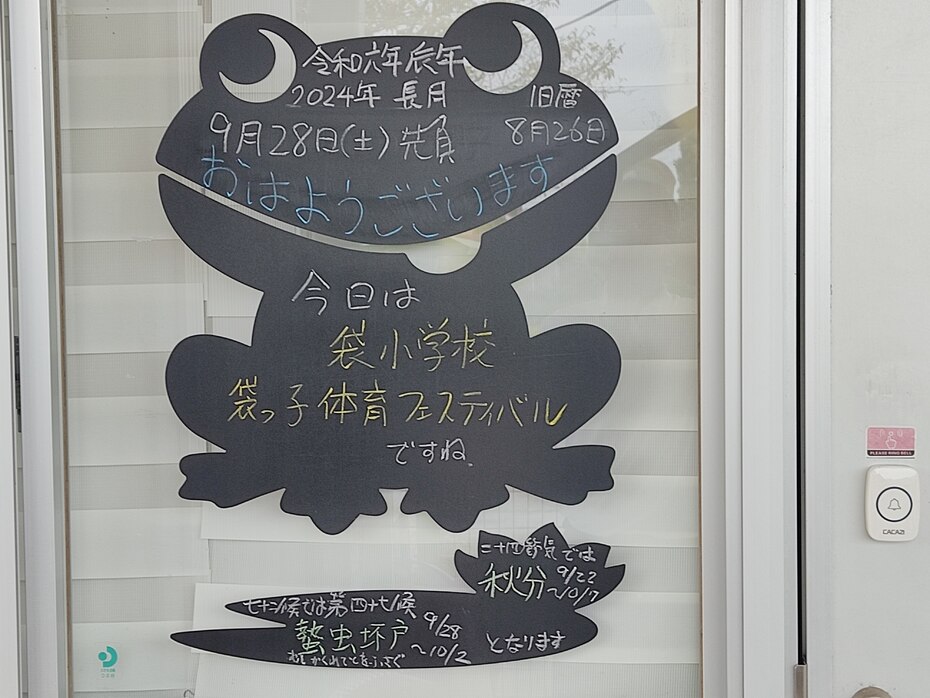 令和六年辰年
2024年 長月
旧暦
9月28日(土)先負
8月26日
おはようございます
今日は
袋小学校
袋っ子体育フェスティバル
ですね
二十四節気では
秋分 9/22
~10/7
七十二候では第四十七候
蟄虫坏戸 9/28
~10/2
むしかくれてとをふさぐ
となります
PLEASE RING BELL
CACAZI